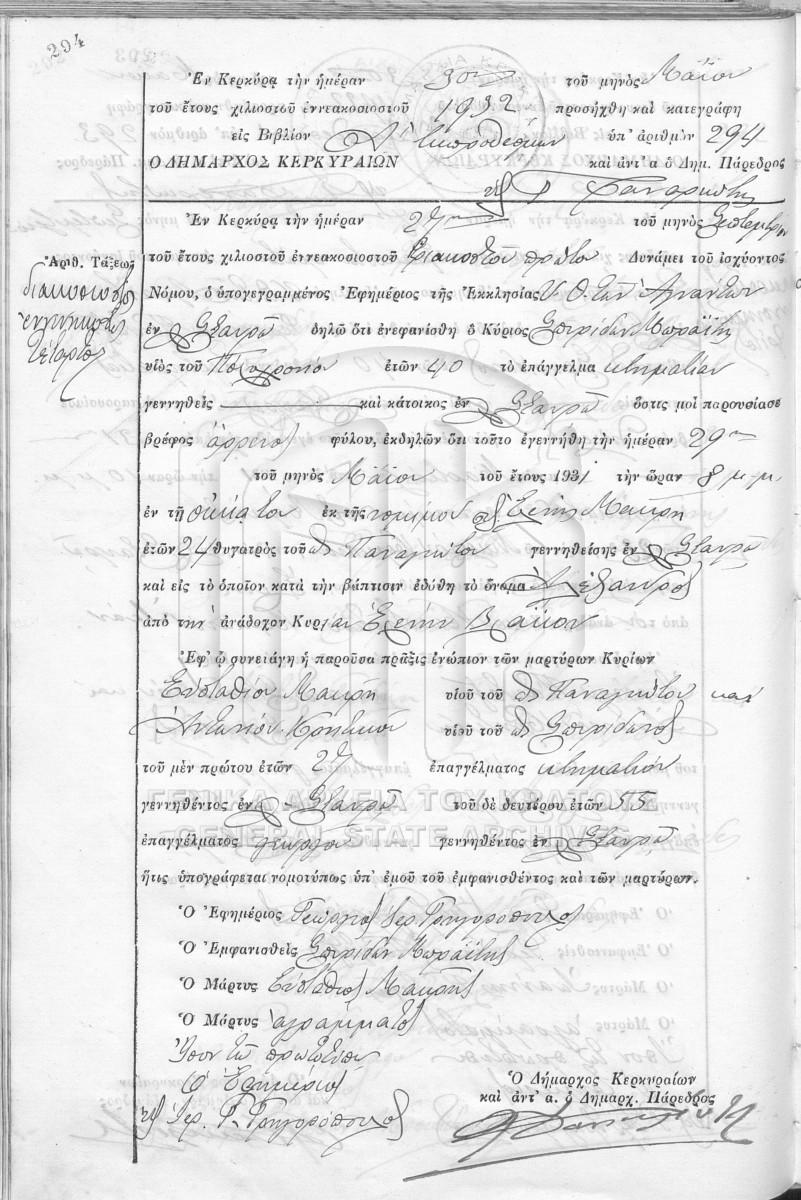 294
Ἐν Κερκύρᾳ τὴν ἡμέραν 30ην τοῦ μηνὸς Μαΐου
τοῦ ἔτους χιλιοστοῦ ἐννεακοσιοστοῦ 1932 προσήχθη καὶ κατεγράφη
εἰς Βιβλίον Α' ἐκπροθέσμων ὑπ' ἀριθμὸν 294
Ο ΔΗΜΑΡΧΟΣ ΚΕΡΚΥΡΑΙΩΝ καὶ ἀντ' α ὁ Δημ. Πάρεδρος
Ἐν Κερκύρᾳ τὴν ἡμέραν 27ην τοῦ μηνὸς Σεπτεμβρίου
Ἀριθ. Τάξεως
διακοσιοστὸς
ἐνενηκοστὸς
τέταρτος
τοῦ ἔτους χιλιοστοῦ ἐννεακοσιοστοῦ τριακοστοῦ πρώτου Δυνάμει τοῦ ἰσχύοντος
Νόμου, ὁ ὑπογεγραμμένος Ἐφημέριος τῆς Ἐκκλησίας Υ. Θ. τῶν
ἐν Σταυρῷ δηλῶ ὅτι ἐνεφανίσθη ὁ Κύριος Σπυρίδων Μωραΐτης
υἱὸς τοῦ Πολυχρονίου ἐτῶν 40 τὸ ἐπάγγελμα κτηματίου
γεννηθεὶς καὶ κάτοικος ἐν Σταυρῷ ὅστις μοὶ παρουσίασε
βρέφος ἄρρενος φύλου, ἐκδηλῶν ὅτι τοῦτο ἐγεννήθη τὴν ἡμέραν 29ην
τοῦ μηνὸς Μαΐου τοῦ ἔτους 1931 τὴν ὥραν 8 μ.μ.
ἐν τῇ οἰκίᾳ του ἐκ τῆς νομίμου Ἑλένη Μακρῆ
ἐτῶν 24 θυγατρὸς τοῦ Παναγιώτου γεννηθείσης ἐν Σταυρῷ
καὶ εἰς τὸ ὁποῖον κατὰ τὴν βάπτισιν ἐδόθη τὸ ὄνομα Ἀλέξανδρος
ἀπὸ τὴν ἀνάδοχον Κυρίαν Ἑλένην Βλάχου
Ἐφ' ᾧ συνετάγη ἡ παροῦσα πρᾶξις ἐνώπιον τῶν μαρτύρων Κυρίων
Εὐσταθίου Μακρῆ υἱοῦ τοῦ Παναγιώτου καὶ
Ἀντωνίου Κρητικοῦ υἱοῦ τοῦ Σπυρίδωνος
τοῦ μὲν πρώτου ἐτῶν 27 ἐπαγγέλματος κτηματίου
γεννηθέντος ἐν Σταυρῷ τοῦ δὲ δευτέρου ἐτῶν 55
ΓΕΝΙΚΑ ΑΡΧΕΙΑ ΤΟΥ ΚΡΑΤΟΥΣ
GENERAL STATE ARCHIVES
ἐπαγγέλματος γεωργοῦ γεννηθέντος ἐν Σταυρῷ
ἥτις ὑπογράφεται νομοτύπως ὑπ' ἐμοῦ τοῦ ἐμφανισθέντος καὶ τῶν μαρτύρων.
Ὁ Ἐφημέριος Γεώργιος Ἱερ. Γρηγορόπουλος
Ὁ Ἐμφανισθεὶς Σπυρίδων Μωραΐτης
Ὁ Μάρτυς Εὐστάθιος Μακρῆς
Ὁ Μάρτυς ἀγράμματος
Ἴσον τῷ πρωτοτύπῳ
Ὁ Ἐφημέριος
Ἱερ. Γ. Γρηγορόπουλος
Ὁ Δήμαρχος Κερκυραίων
καὶ ἀντ' α. ὁ Δημαρχ. Πάρεδρος